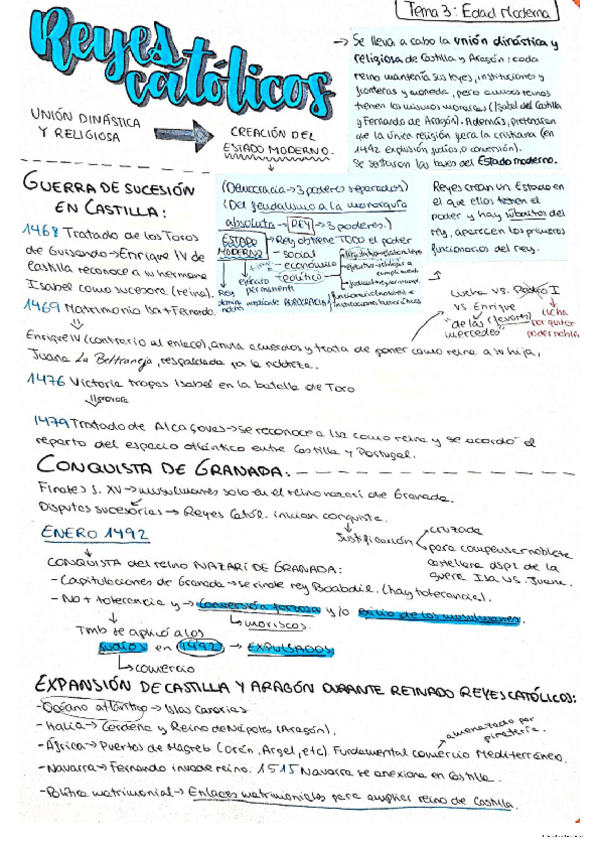 Tema 3: Edad Moderna
Reyes católicos
UNIÓN DINÁSTICA
Y RELIGIOSA
CREACIÓN DEL
ESTADO MODERNO.
→ Se lleva a cabo la unión dinástica y
religiosa de Castilla y Aragón: cada
reino mantenía sus leyes, instituciones y
fronteras y moneda, pero ambos reinos
tienen los mismos monarcas (Isabel de Castilla
y Fernando de Aragón). Además, pretendían
que la única religión fuera la cristiana (en
1492 explusión judíos o conversión).
Se sentaron las bases del Estado moderno.
GUERRA DE SUCESIÓN
EN CASTILLA:
1468 Tratado de los Toros
de Guisando → Enrique IV de
Castilla reconoce a su hermana
Isabel como sucesora (reina).
1469 Matrimonio Isa + Fernando.
(Democracia → 3 poderes separados)
(Del feudalismo a la monarquía
absoluta → REY → 3 poderes.)
ESTADO
MODERNO
Rey obtiene TODO el poder
- social
- económico
- político
Rey
ejército
permanente
mediante BUROCRACIA
Reyes crean un Estado en
el que ellos tienen el
poder y hay súbditos del
rey, aparecen los primeros
funcionarios del rey.
Lucha vs. Pedro I
vs Enrique
"de las (favores)
mercedes"
lucha
por quitar
poder nobleza
Enrique IV (contrario al enlace), anula acuerdos y trata de poner como reina a su hija,
Juana La Beltraneja, respaldada por la nobleza.
1476 Victoria tropas Isabel en la batalla de Toro
provoca
1479 Tratado de Alcaçovas → se reconoce a Isa como reina y se acordó el
reparto del espacio atlántico entre Castilla y Portugal.
CONQUISTA DE GRANADA:
Finales S. XV → musulmanes solo en el reino nazarí de Granada.
Disputas sucesorias → Reyes Catól. inician conquista.
Justificación
cruzada
para compensar nobleza
castellana dspl de la
guerra Isa VS. Juana.
ENERO 1492
CONQUISTA del reino NAZARÍ DE GRANADA:
- Capitulaciones de Granada → se rinde rey Boabdil. (hay tolerancia).
- No + tolerancia y → conversión forzosa y/o exilio de los musulmanes.
moriscos.
Tmb se aplicó a los
judíos en 1492 → EXPULSADOS
comercio
EXPANSIÓN DE CASTILLA Y ARAGÓN DURANTE REINADO REYES CATÓLICOS:
- Océano atlántico → Islas Canarias
- Italia → Cerdeña y Reino de Nápoles (Aragón).
amenazado por
piratería.
- África → Puertos de Magreb (Orán, Argel, etc). Fundamental comercio Mediterráneo.
- Navarra → Fernando invade reino. 1515 Navarra se anexiona en Castilla.
- Política matrimonial → Enlaces matrimoniales para ampliar reino de Castilla.